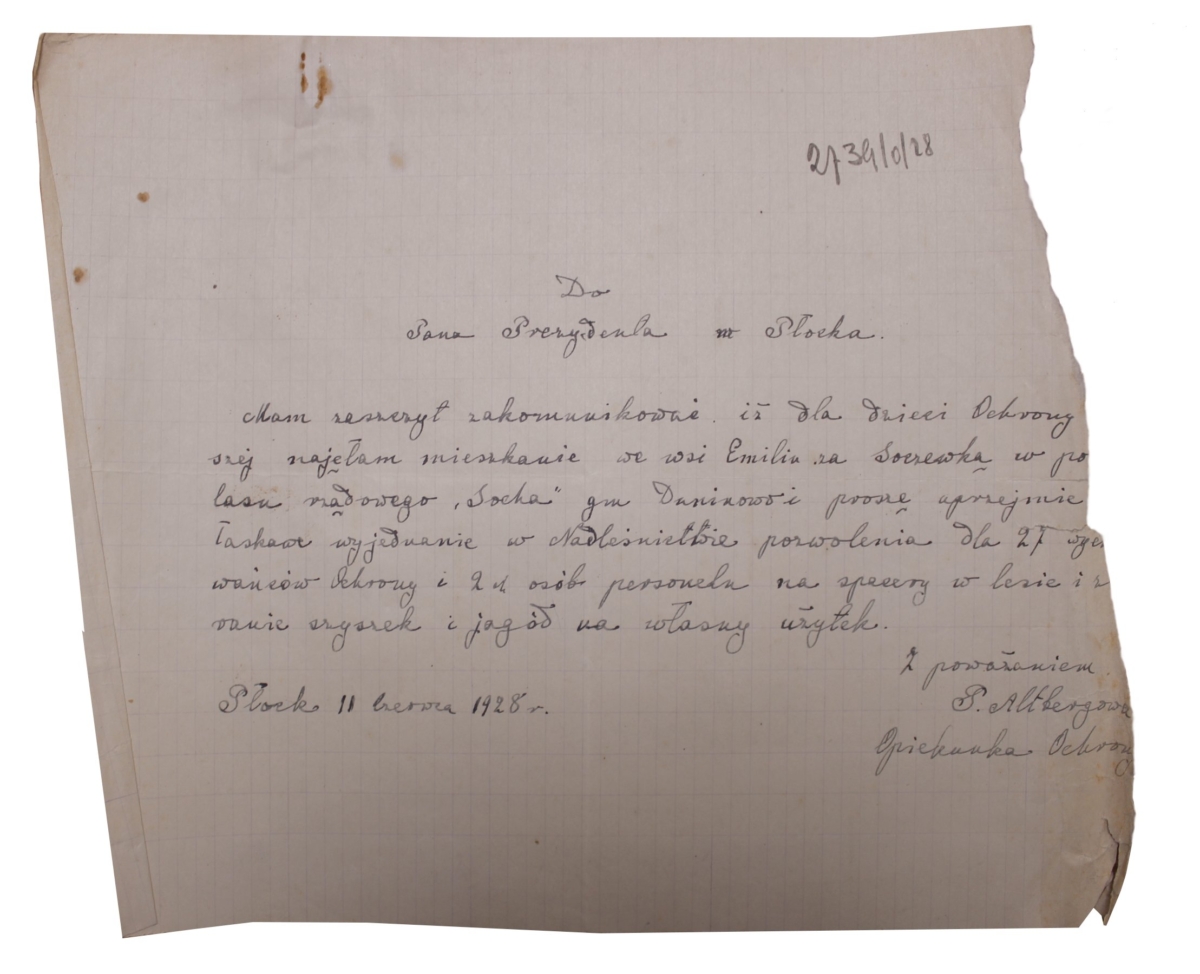 2734/0/28
Do
Pana Prezydenta m Płocka.
Mam zaszczyt zakomunikować iż dla dzieci Ochrony
széj najęłam mieszkanie we wsi Emilin za Soczewką w po
lasu rządowego „Socha” gm Duninowo i proszę uprzejmie
łaskawe wyjednanie w Nadleśnictwie pozwolenia dla 27 wych
wańców Ochrony i 2 ch osób personelu na spacery w lesie i z
ranie szyszek i jagód na własny użytek.
Z poważaniem.
Płock 11 Czerwca 1928 r.
P. Altbergowa
Opiekunka Ochron